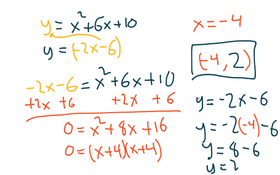 y = x² + 6x + 10
y = (-2x - 6)
-2x - 6 = x² + 6x + 10
+2x +6 +2x + 6
0 = x² + 8x + 16
0 = (x+4)(x+4)
x = -4
(-4, 2)
y = -2x - 6
y = -2(-4) - 6
y = 8 - 6
y = 2